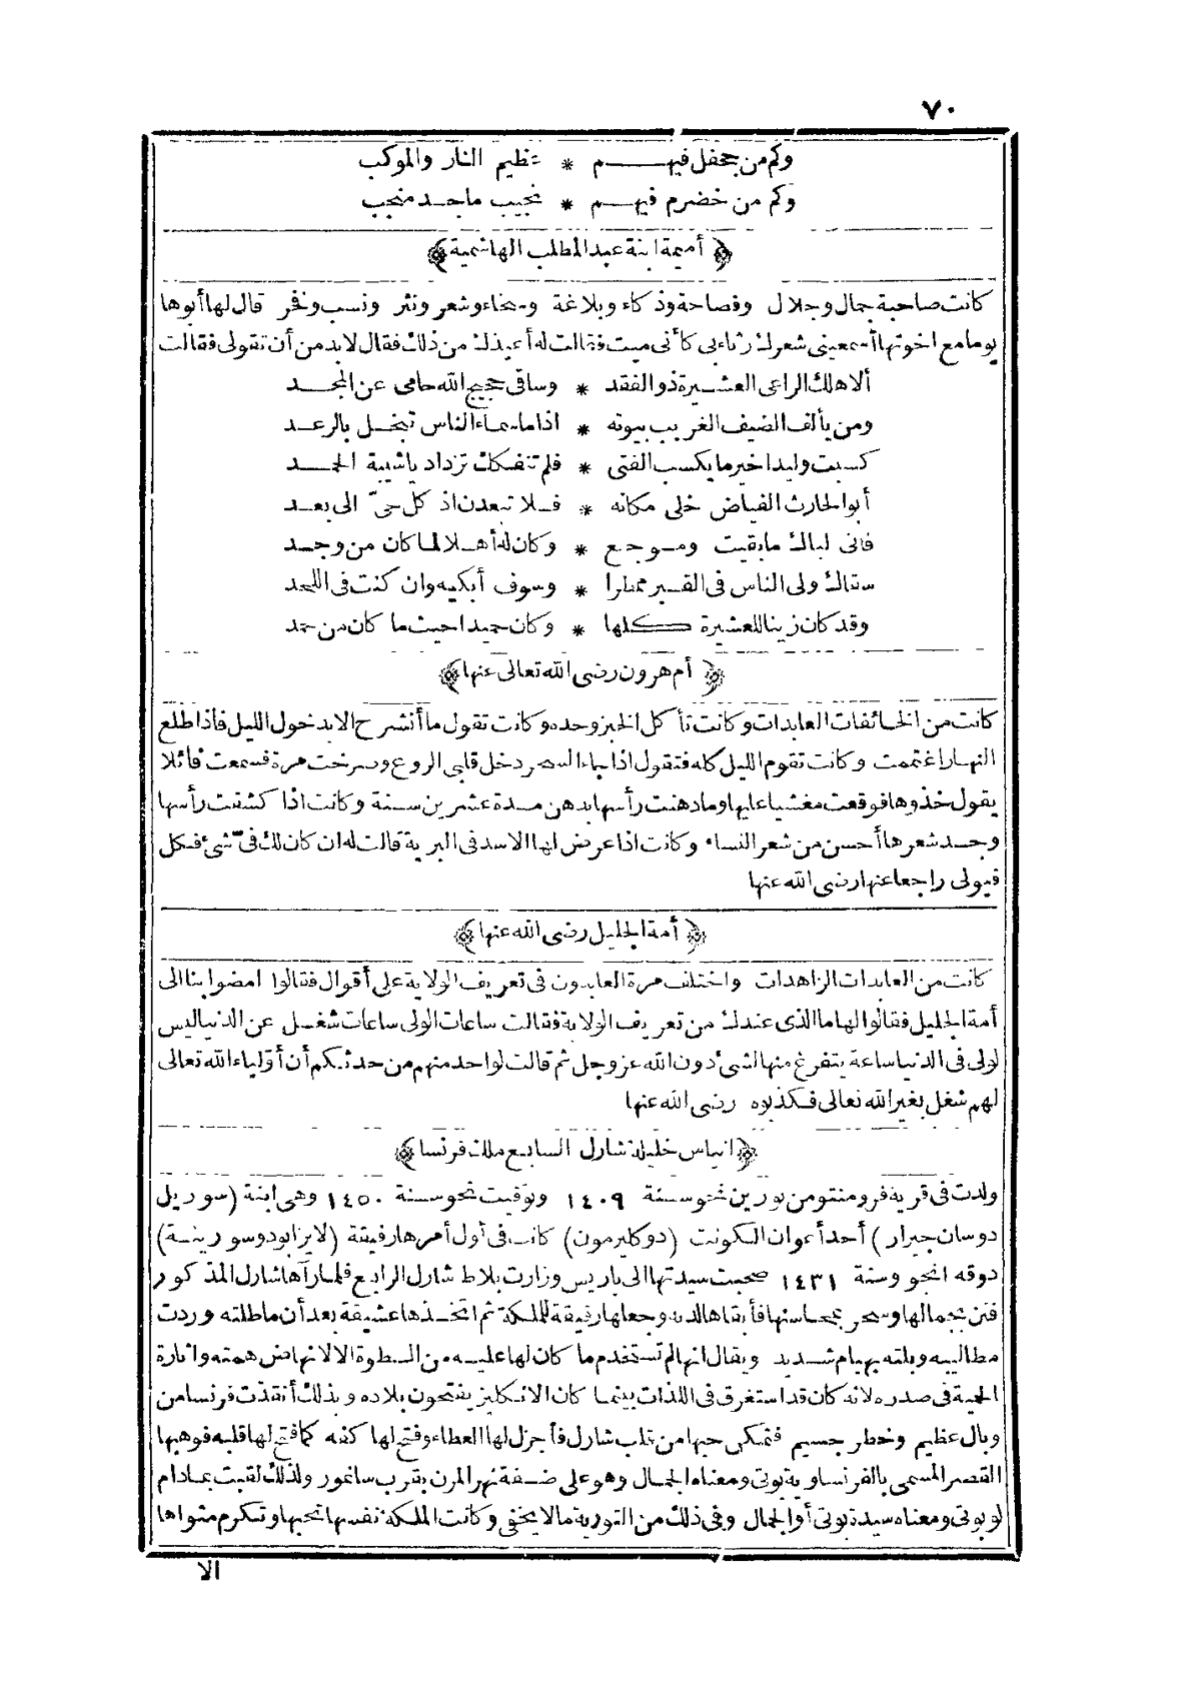 ٧٠
وكم من جحفل فيهم * عظيم النار والموكب
وكم من خضرم فيهم * نجيب ماجد منجب
﴿أميمة ابنة عبد المطلب الهاشمية﴾
كانت صاحبة جمال وجلال وفصاحة وذكاء وبلاغة وسخاء وشعر ونثر ونسب وفخر قال لها أبوها
يوما مع اخوتها أسمعيني شعرك رثاء بي كأني ميت فقالت له أعيذك من ذلك فقال لابد من أن تقولي فقالت
ألا هلك الراعي العشيرة ذو الفقد * وساقي حجيج الله حامي عن المجد
ومن يألف الضيف الغريب بيوته * اذا ما سماء الناس تبخل بالرعد
كسبت وليدا خير ما يكسب الفتى * فلم تنفكك تزداد يا شيبة الحمد
أبو الحارث الفياض خلى مكانه * فلا تبعدن اذ كل حيّ الى بعد
فاني لباك ما بقيت وموجع * وكان له أهلا لما كان من وجد
سقاك ولي الناس في القبر ممطرا * وسوف أبكيه وان كنت في اللحد
وقد كان زينا للعشيرة كلها * وكان حميدا حيث ما كان من حمد
﴿أم هرون رضي الله تعالى عنها﴾
كانت من الخائفات العابدات وكانت تأكل الخبز وحده وكانت تقول ما أنشرح الا بدخول الليل فاذا طلع
النهار اغتممت وكانت تقوم الليل كله فتقول اذا جاء السحر دخل قلبي الروع وصرخت مرة فسمعت قائلا
يقول خذوها فوقعت مغشيا عليها وما دهنت رأسها بدهن مدة عشرين سنة وكانت اذا كشفت رأسها
وجد شعرها أحسن من شعر النساء وكانت اذا عرض لها الاسد في البرية قالت له ان كان لك فيّ شئ فكل
فيولي راجعا عنها رضي الله عنها
﴿أمة الجليل رضي الله عنها﴾
كانت من العابدات الزاهدات واختلف مرة العابدون في تعريف الولاية على أقوال فقالوا امضوا بنا الى
أمة الجليل فقالوا لها ما الذي عندك من تعريف الولاية فقالت ساعات الولي ساعات شغل عن الدنيا ليس
لولي في الدنيا ساعة يتفرغ منها لشئ دون الله عز وجل ثم قالت لواحد منهم من حدثكم أن أولياء الله تعالى
لهم شغل بغير الله تعالى فكذبوه رضي الله عنها
﴿انياس خليلة شارل السابع ملك فرنسا﴾
ولدت في قرية فرومنتو من تورين نحو سنة ١٤٠٩ وتوفيت نحو سنة ١٤٥٠ وهي ابنة (سوريل
دوسان جيرار) أحد أعوان الكونت (دوكليرمون) كانت في أول أمرها رفيقة (لايزابو دو سورينة)
دوقه انجو وسنة ١٤٣١ صحبت سيدتها الى باريس وزارت بلاط شارل الرابع فلما رآها شارل المذكور
فتن بجمالها وسحر بمحاسنها فأبقاها لديه وجعلها رفيقة للملكة ثم اتخذها عشيقة بعد أن ماطلته وردت
مطاليبه وبلته بهيام شديد ويقال انها لم تستخدم ما كان لها عليه من السطوة الا لانهاض همته واثارة
الحمية في صدره لانه كان قد استغرق في اللذات بينما كان الانكليز يفتحون بلاده وبذلك أنقذت فرنسا من
وبال عظيم وخطر جسيم فتمكن حبها من قلب شارل فأجزل لها العطاء وفتح لها كفه كما فتح لها قلبه فوهبها
القصر المسمى بالفرنساوية بوتي ومعناه الجمال وهو على ضفة نهر المرن بقرب سانمور ولذلك لقبت بمادام
لوبوتي ومعناه سيدة بوتي أو الجمال وفي ذلك من التورية مالا يخفى وكانت الملكة نفسها تحبها وتكرم مثواها
الا